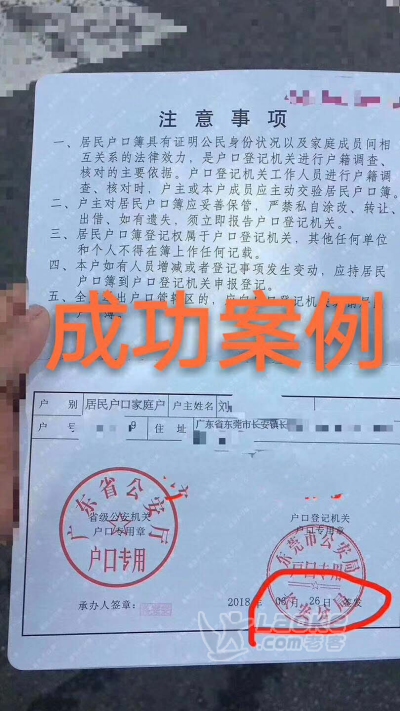 注意事项
一、居民户口簿具有证明公民身份状况以及家庭成员间相
互关系的法律效力，是户口登记机关进行户籍调查、
核对的主要依据。户口登记机关工作人员进行户籍调
查、核对时，户主或本户成员应主动交验居民户口簿。
二、户主对居民户口簿应妥善保管，严禁私自涂改、转让、
出借。如有遗失，须立即报告户口登记机关。
三、居民户口簿登记权属于户口登记机关，其他任何单位
和个人不得在簿上作任何记载。
四、本户如有人员增减或者登记事项发生变动，应持居民
户口簿到户口登记机关申报登记。
五、全
成功案例
户 别 居民户口家庭户 户主姓名 刘
户 号 9 住 址 广东省东莞市长安镇长
广东省公安厅
户口专用
省级公安机关
户口专用章
户口登记机关
户口专用章
东莞市公安局
户口专用
承办人签章：
2018 年 06 月 26 日 签发
Laoke
.com老客